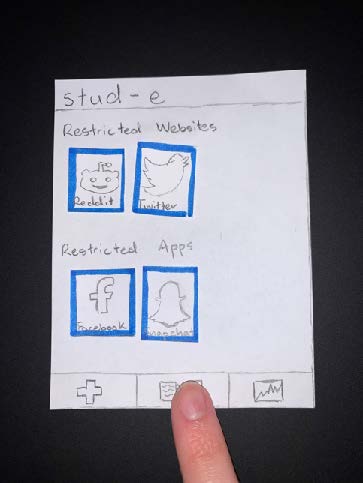 stud-e
Restricted Websites
Reddit Twitter
Restricted Apps
Facebook Snapchat